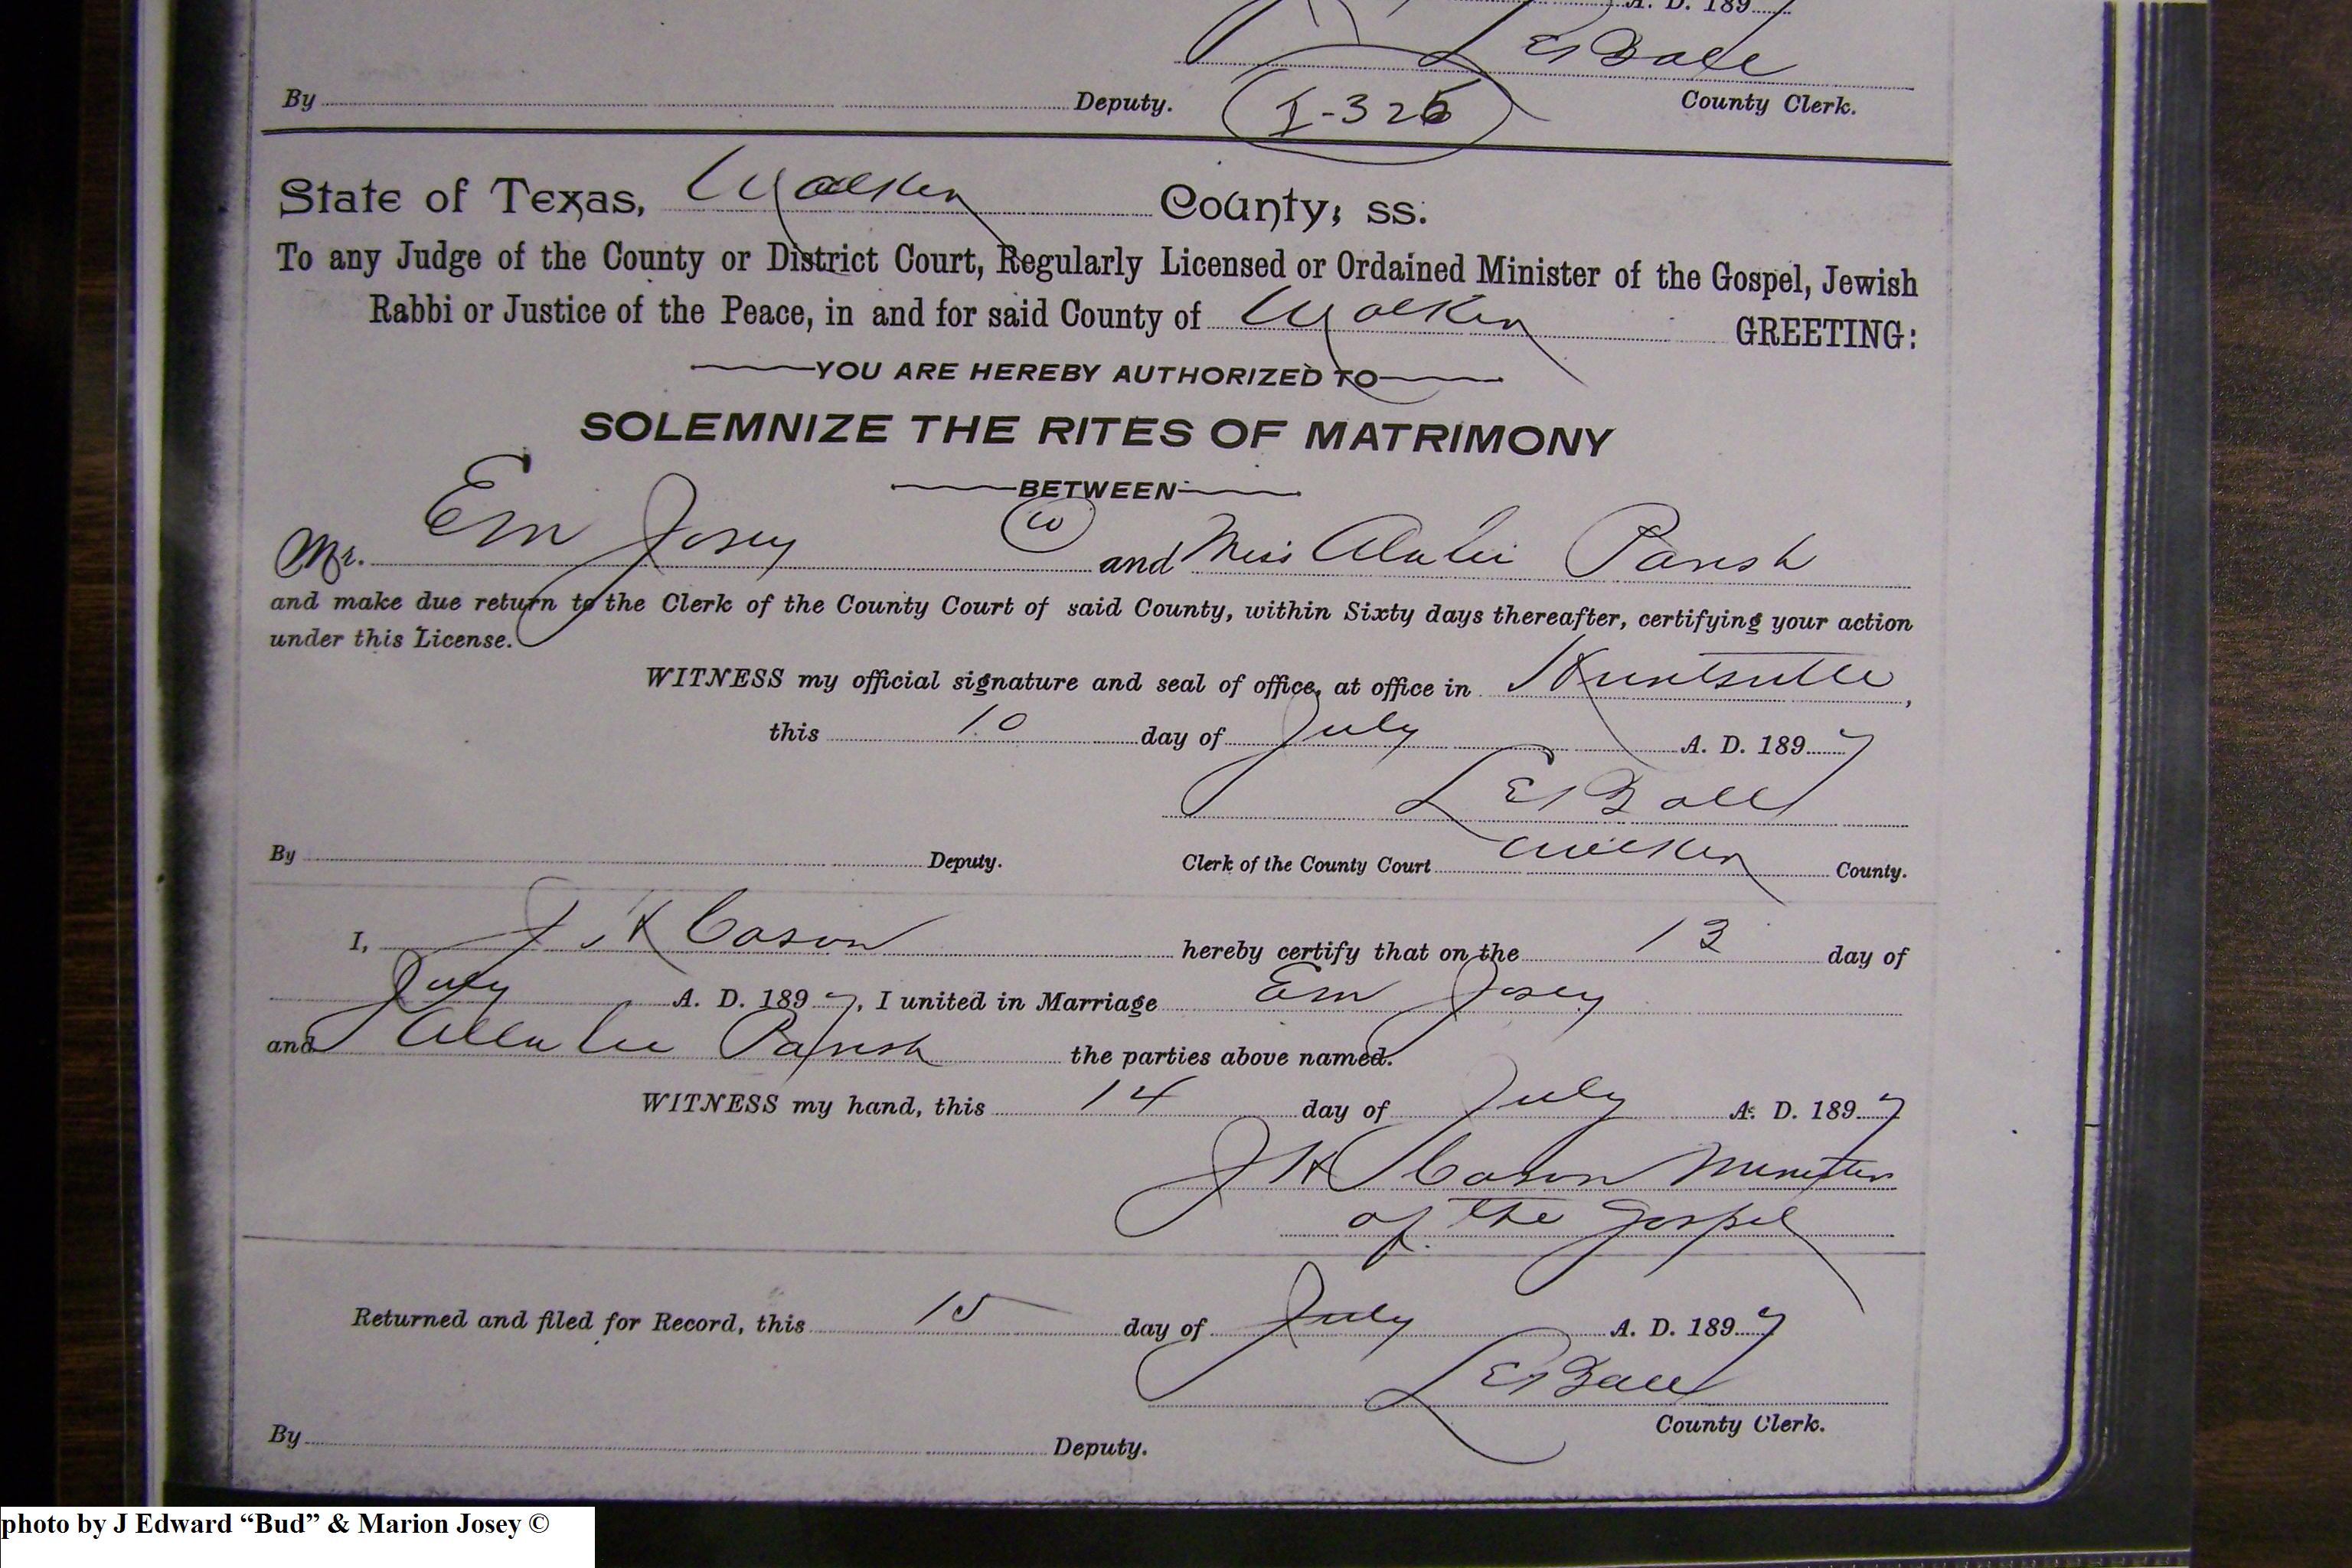 A. D. 1897
L E Ball
By Deputy. County Clerk.
I-326
State of Texas, Walker County; ss.
To any Judge of the County or District Court, Regularly Licensed or Ordained Minister of the Gospel, Jewish
Rabbi or Justice of the Peace, in and for said County of Walker GREETING:
YOU ARE HEREBY AUTHORIZED TO
SOLEMNIZE THE RITES OF MATRIMONY
BETWEEN
Mr. Em Josey and Miss Parish
and make due return to the Clerk of the County Court of said County, within Sixty days thereafter, certifying your action
under this License.
WITNESS my official signature and seal of office, at office in Huntsville,
this 10 day of July A. D. 1897
L E Ball
By Deputy. Clerk of the County Court Walker County.
I, J K Cason hereby certify that on the 13 day of
July A. D. 1897, I united in Marriage Em Josey
and Parish the parties above named.
WITNESS my hand, this 14 day of July A. D. 1897
J K Cason Minister
of the Gospel
Returned and filed for Record, this 15 day of July A. D. 1897
L E Ball
County Clerk.
By Deputy.
photo by J Edward “Bud” & Marion Josey ©